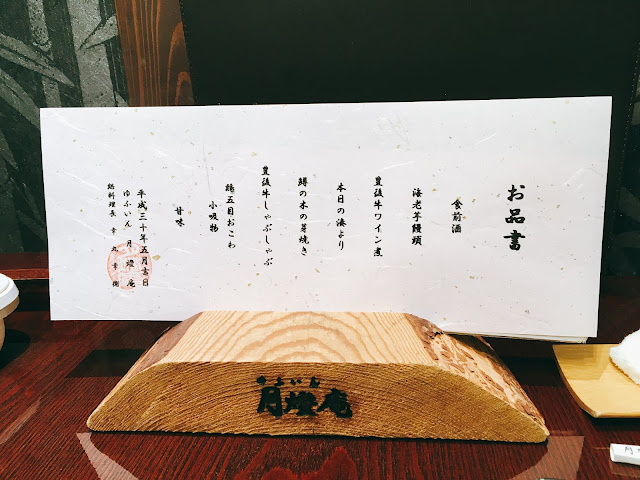 お品書
食前酒
海老芋饅頭
豊後牛ワイン煮
本日の湊より
鱒の木の芽焼き
豊後牛しゃぶしゃぶ
鶏五目おこわ
小吸物
甘味
平成三十年五月吉日
ゆふいん 月燈庵
総料理長
ゆふいん
月燈庵